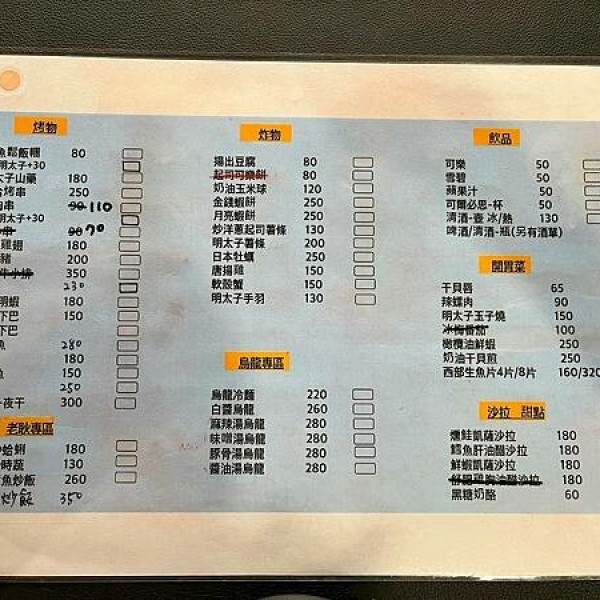 烤物
魚鬆飯糰 80
明太子+30
太子山藥 180
烤串 250
串 90 110
明太子+30
串 90 70
雞翅 180
豬 200
牛小排 350
230
明蝦 180
下巴 150
下巴
魚 280
180
魚 150
250
一夜干 300
老耿專區
蛤蜊 180
時蔬 130
魚炒飯 260
炒飯 350
炸物
揚出豆腐 80
起司可樂餅 80
奶油玉米球 120
金錢蝦餅 250
月亮蝦餅 250
炒洋蔥起司薯條 130
明太子薯條 200
日本牡蠣 250
唐揚雞 150
軟殼蟹 150
明太子手羽 130
烏龍專區
烏龍冷麵 220
白醬烏龍 260
麻辣湯烏龍 280
味噌湯烏龍 280
豚骨湯烏龍 280
醬油湯烏龍 280
飲品
可樂 50
雪碧 50
蘋果汁 50
可爾必思-杯 50
清酒-壺 冰/熱 130
啤酒/清酒-瓶(另有酒單)
開胃菜
干貝唇 65
辣螺肉 90
明太子玉子燒 150
冰梅番茄 100
橄欖油鮮蝦 250
奶油干貝煎 250
西部生魚片4片/8片 160/320
沙拉 甜點
燻鮭凱薩沙拉 180
鱈魚肝油醋沙拉 180
鮮蝦凱薩沙拉 180
舒肥雞胸油醋沙拉 180
黑糖奶酪 60